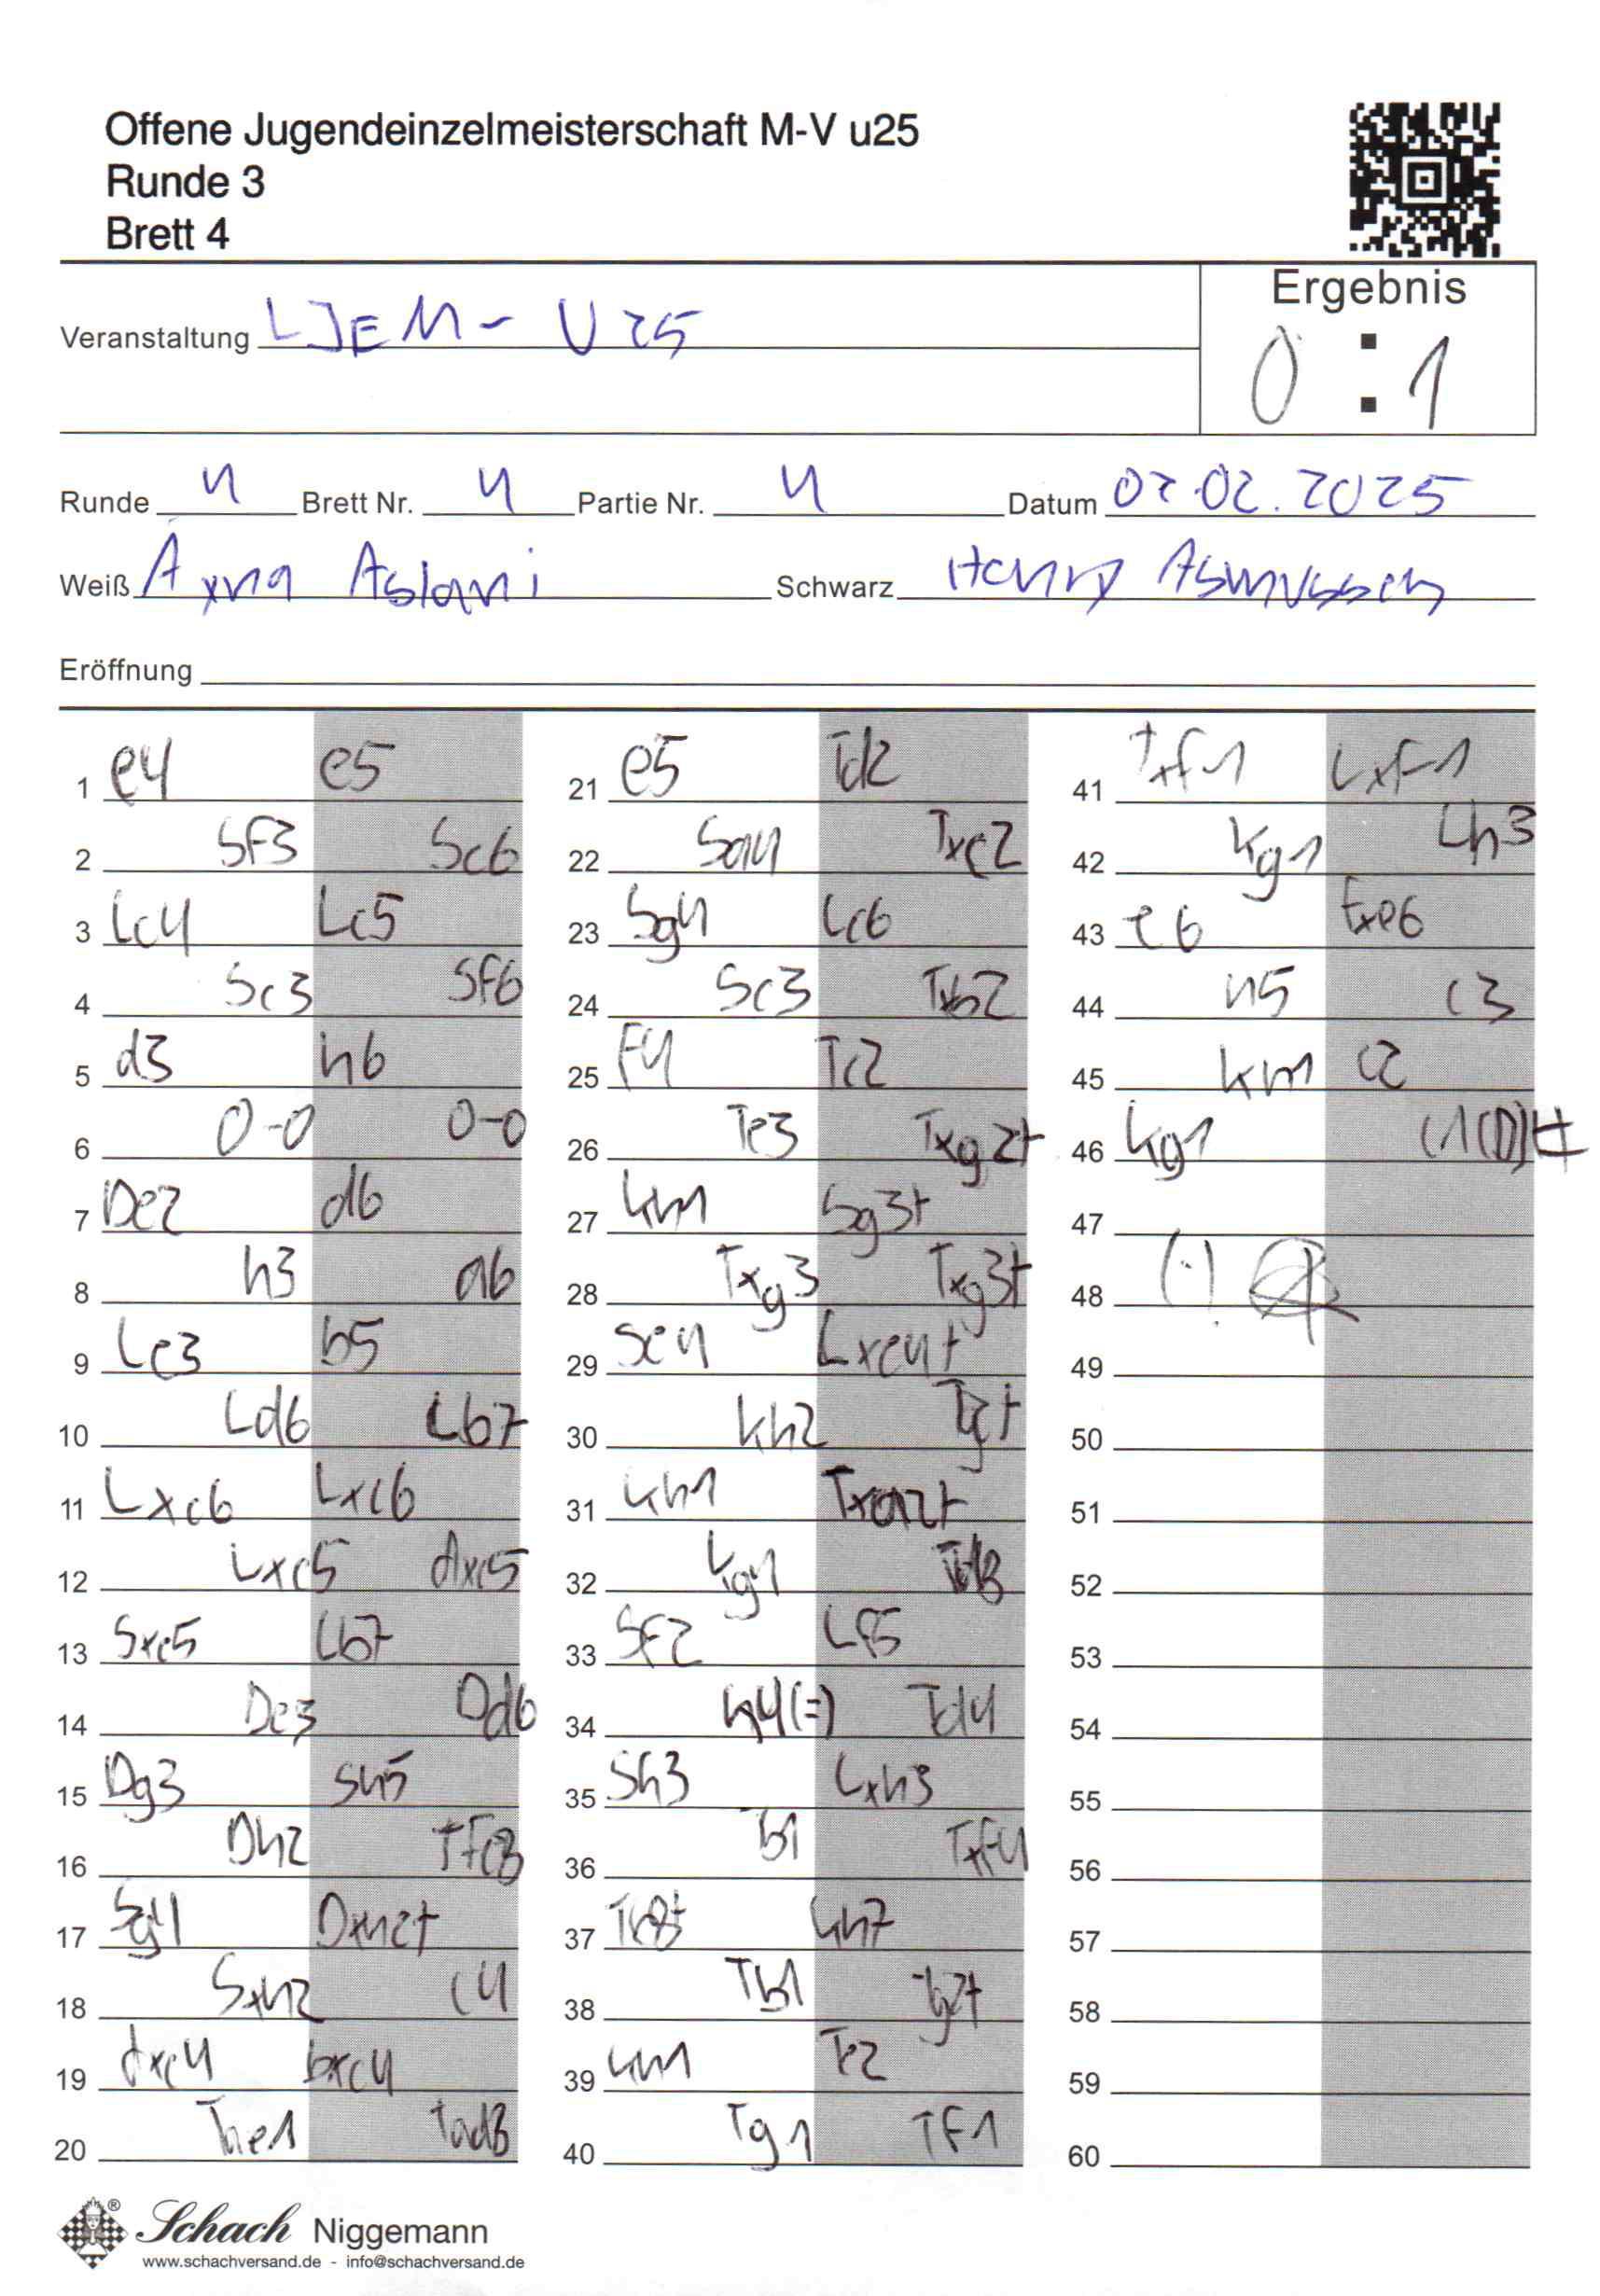 Offene Jugendeinzelmeisterschaft M-V u25
Runde 3
Brett 4
Ergebnis
0 : 1
Veranstaltung LJEM - U25
Runde 4 Brett Nr. 4 Partie Nr. 4 Datum 02.02.2025
Weiß Aslani Schwarz Henry Asmussen
Eröffnung
1 e4 e5
2 Sf3 Sc6
3 Lc4 Lc5
4 Sc3 Sf6
5 d3 h6
6 0-0 0-0
7 De2 d6
8 h3 a6
9 Le3 b5
10 Ld6 Lb7
11 Lxc6 Lxc6
12 Lxc5 dxc5
13 Sxe5 Lb7
14 De3 Dd6
15 Dg3 Sh5
16 Dh2 Tfe8
17 Sg4 Dxh2+
18 Sxh2 c4
19 dxc4 bxc4
20 Tae1 Tad8
21 e5 Td2
22 Sa4 Txc2
23 Sg4 Lc6
24 Sc3 Txb2
25 F4 Tc2
26 Te3 Txg2+
27 Kh1 Sg3+
28 Txg3 Txg3+
29 Se4 Lxe4+
30 Kh2
31 Kh1 Txa2+
32 Kg1 Td8
33 Sf2 Lf5
34 h4(=) Td4
35 Sh3 Lxh3
36 Tb1 Txf4
37 Tb8+ Kh7
38 Tb1 Tg2+
39 Kh1 Te2
40 Tg1 Tf1
41 Txf1 Lxf1
42 Kg1 Lh3
43 e6 Txe6
44 h5 c3
45 Kh1 c2
46 Kg1 c1(D)#
47
48
49
50
51
52
53
54
55
56
57
58
59
60
Schach Niggemann
www.schachversand.de - info@schachversand.de